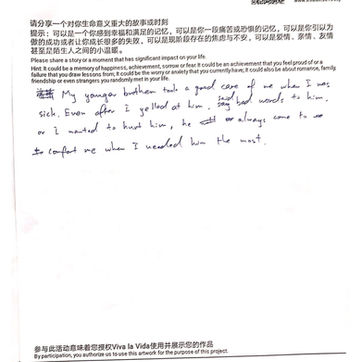 请分享一个对你生命意义重大的故事或时刻
提示：可以是一个你感到幸福和满足的记忆，可以是你一段痛苦或恐惧的记忆，可以是你引以为
傲的成功或者让你成长很多的失败，可以是现阶段存在的焦虑与不安，可以是爱情、亲情、友情
甚至是陌生人之间的小温暖。
Please share a story or a moment that has significant impact on your life.
Hint: It could be a memory of happiness, achievement, sorrow or fear. It could be an achievement that you feel proud of or a
failure that you draw lessons from; It could be the worry or anxiety that you currently have; it could also be about romance, family,
friendship or even strangers you randomly met in your life.
My younger brother took a good care of me when I was
sick. Even after I yelled at him, said bad words to him,
or I wanted to hurt him, he always come to
comfort me when I needed him the most.
参与此活动意味着您授权Viva la Vida使用并展示您的作品
By participation, you authorize us to use this artwork for the purpose of this project.